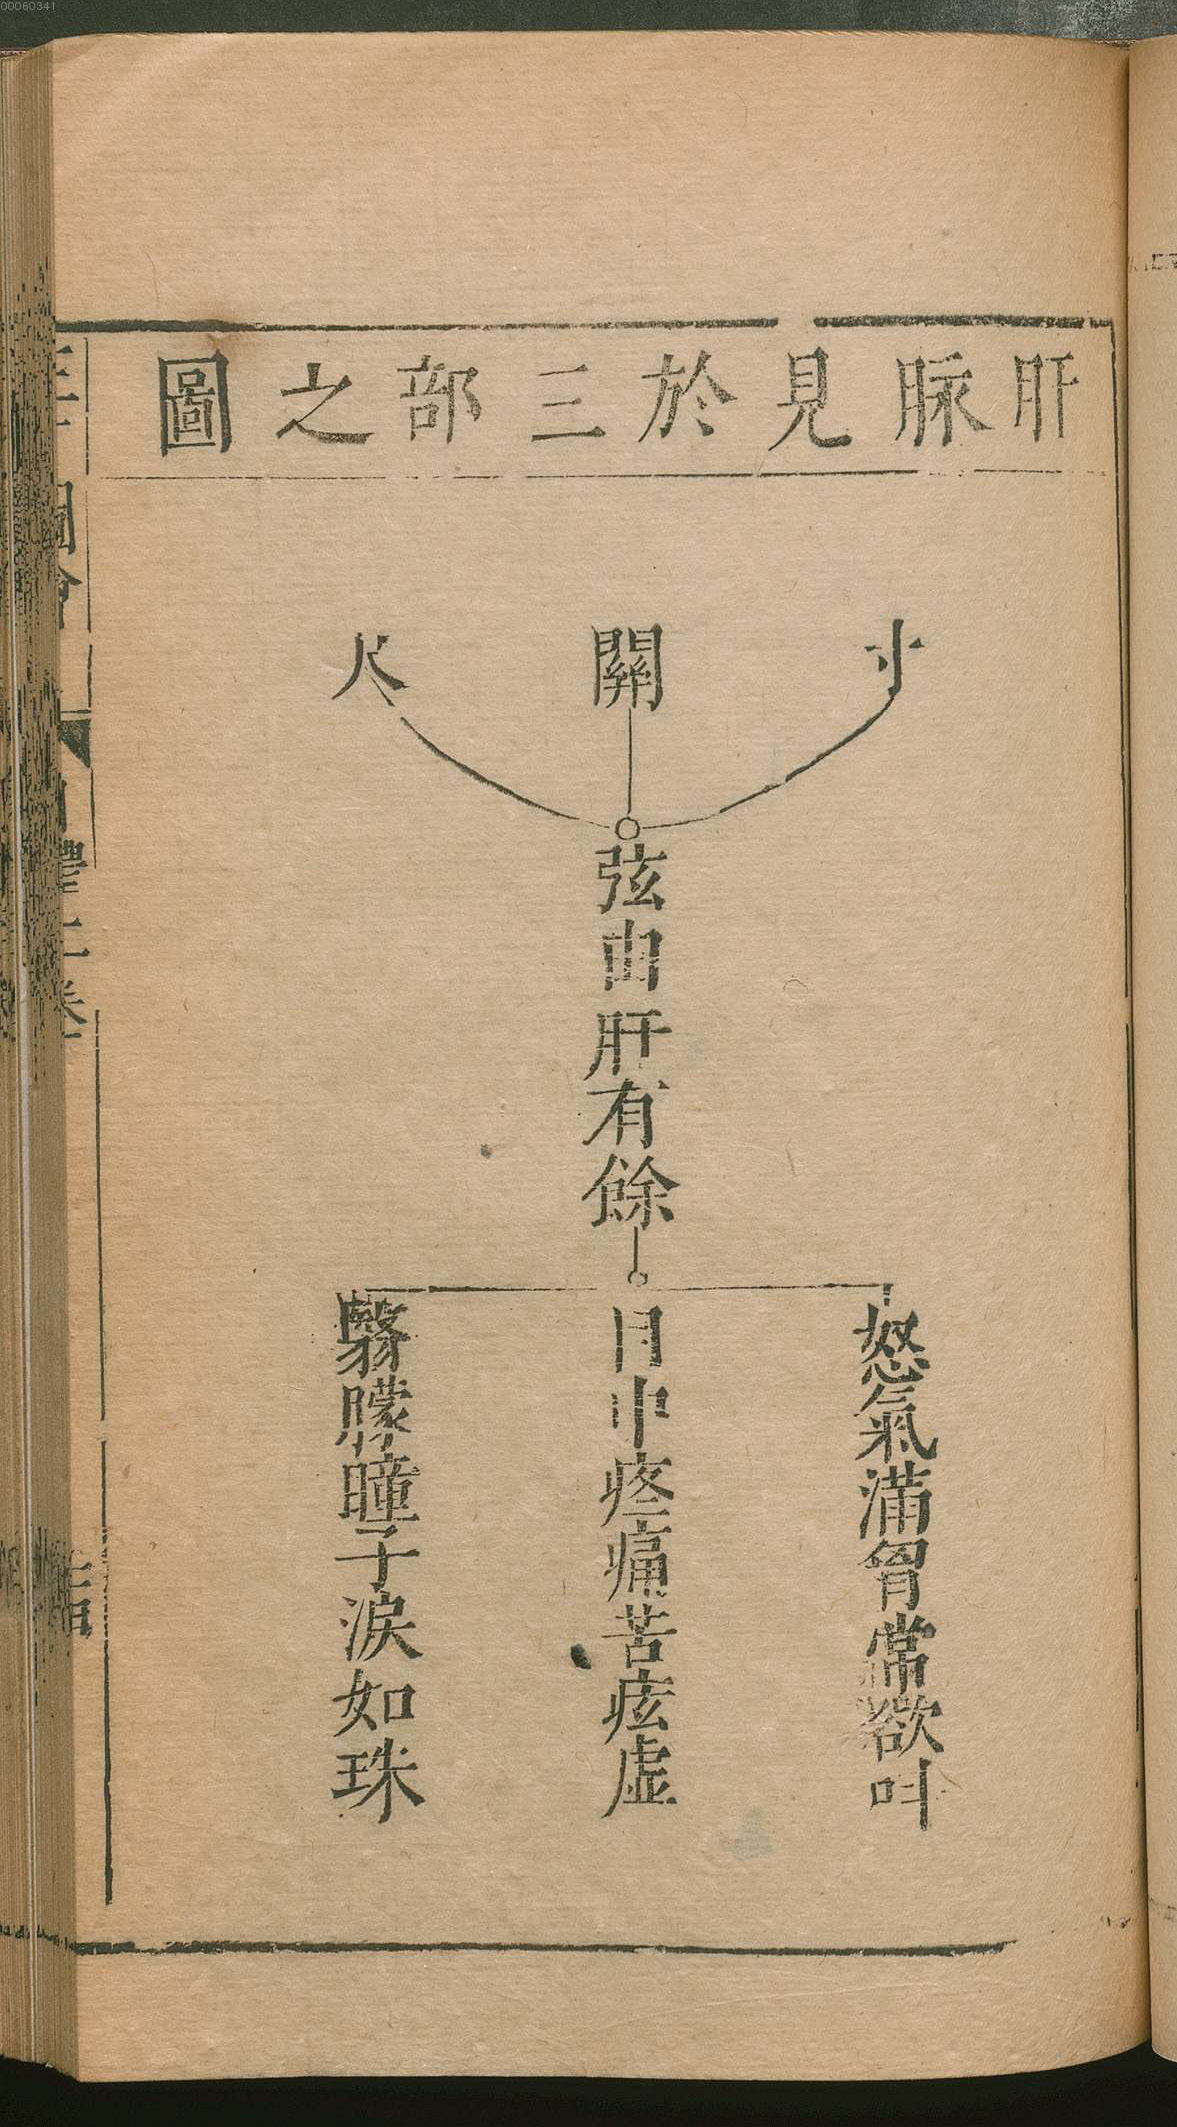 00060341
肝脉見於三部之圖
寸
關
尺
弦由肝有餘
怒氣滿胷常欲叫
目中疼痛苦痃虛
翳朦瞳子淚如珠
圖會
體二卷